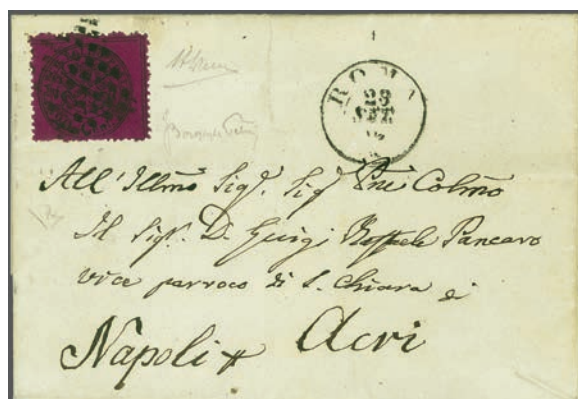 ROMA
23
SET
All'Illmo Sigr. Sigr Pne Colmo
Il Sigr. D. Luigi Raffaele Pancaro
vice parroco di S. Chiara di
Napoli Acri